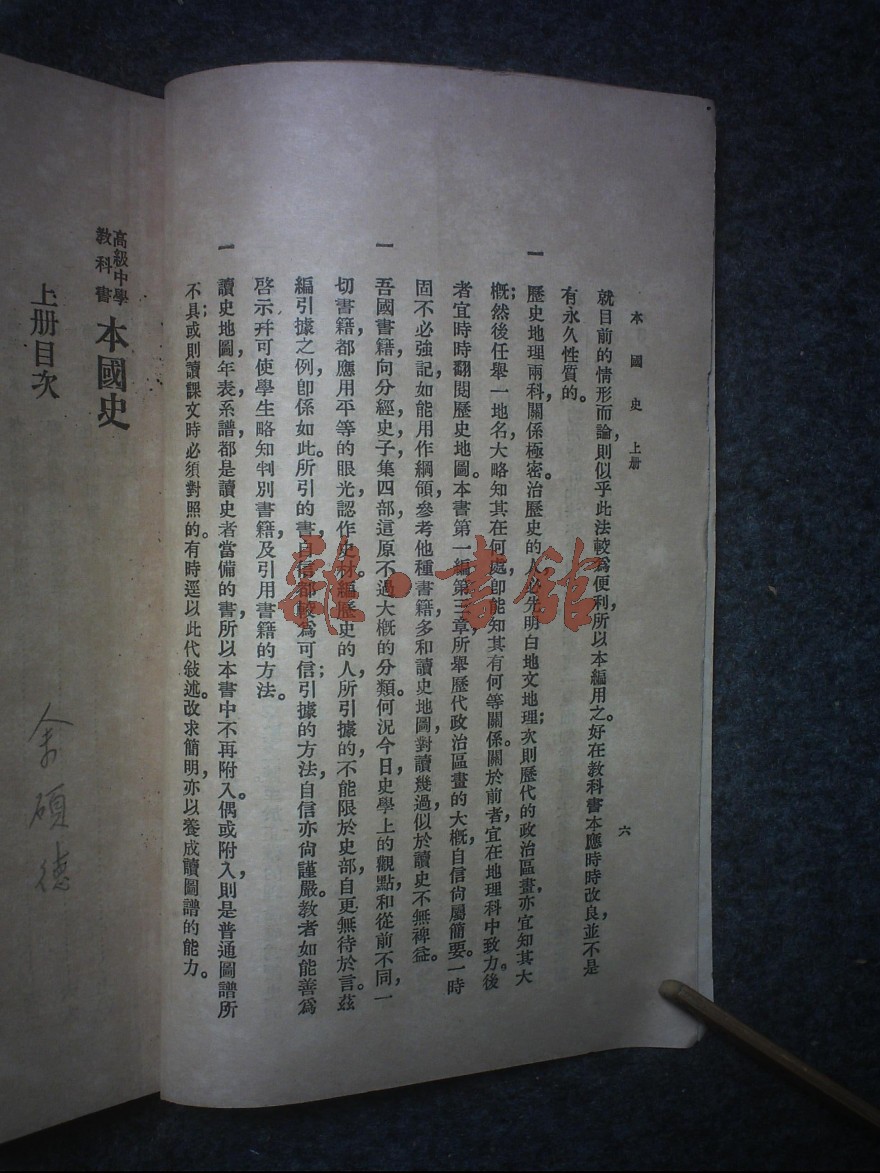 本國史 上册
六
就目前的情形而論，則似乎此法較爲便利，所以本編用之。好在教科書本應時時改良，並不是
有永久性質的。
一 歷史地理兩科，關係極密。治歷史的人，必先明白地文地理；次則歷代的政治區畫，亦宜知其大
概；然後任舉一地名，大略知其在何處，卽能知其有何等關係。關於前者，宜在地理科中致力。後
者宜時時翻閱歷史地圖。本書第一編第三章，所舉歷代政治區畫的大概，自信尙屬簡要。一時
固不必強記，如能用作綱領，參考他種書籍，多和讀史地圖對讀幾過，似於讀史不無裨益。
一 吾國書籍，向分經史子集四部，這原不過大概的分類。何況今日史學上的觀點，和從前不同，一
切書籍，都應用平等的眼光，認作史材。編歷史的人，所引據的，不能限於史部，自更無待於言。茲
編引據之例，卽係如此。所引的書，自信都較爲可信；引據的方法，自信亦尙謹嚴。教者如能善爲
啓示，幷可使學生略知判別書籍，及引用書籍的方法。
一 讀史地圖，年表，系譜，都是讀史者當備的書，所以本書中不再附入。偶或附入，則是普通圖譜所
不具；或則讀課文時必須對照的。有時逕以此代敍述。改求簡明，亦以養成讀圖譜的能力。
高級中學
教科書
本國史
上册目次
余碩德
雜·書館